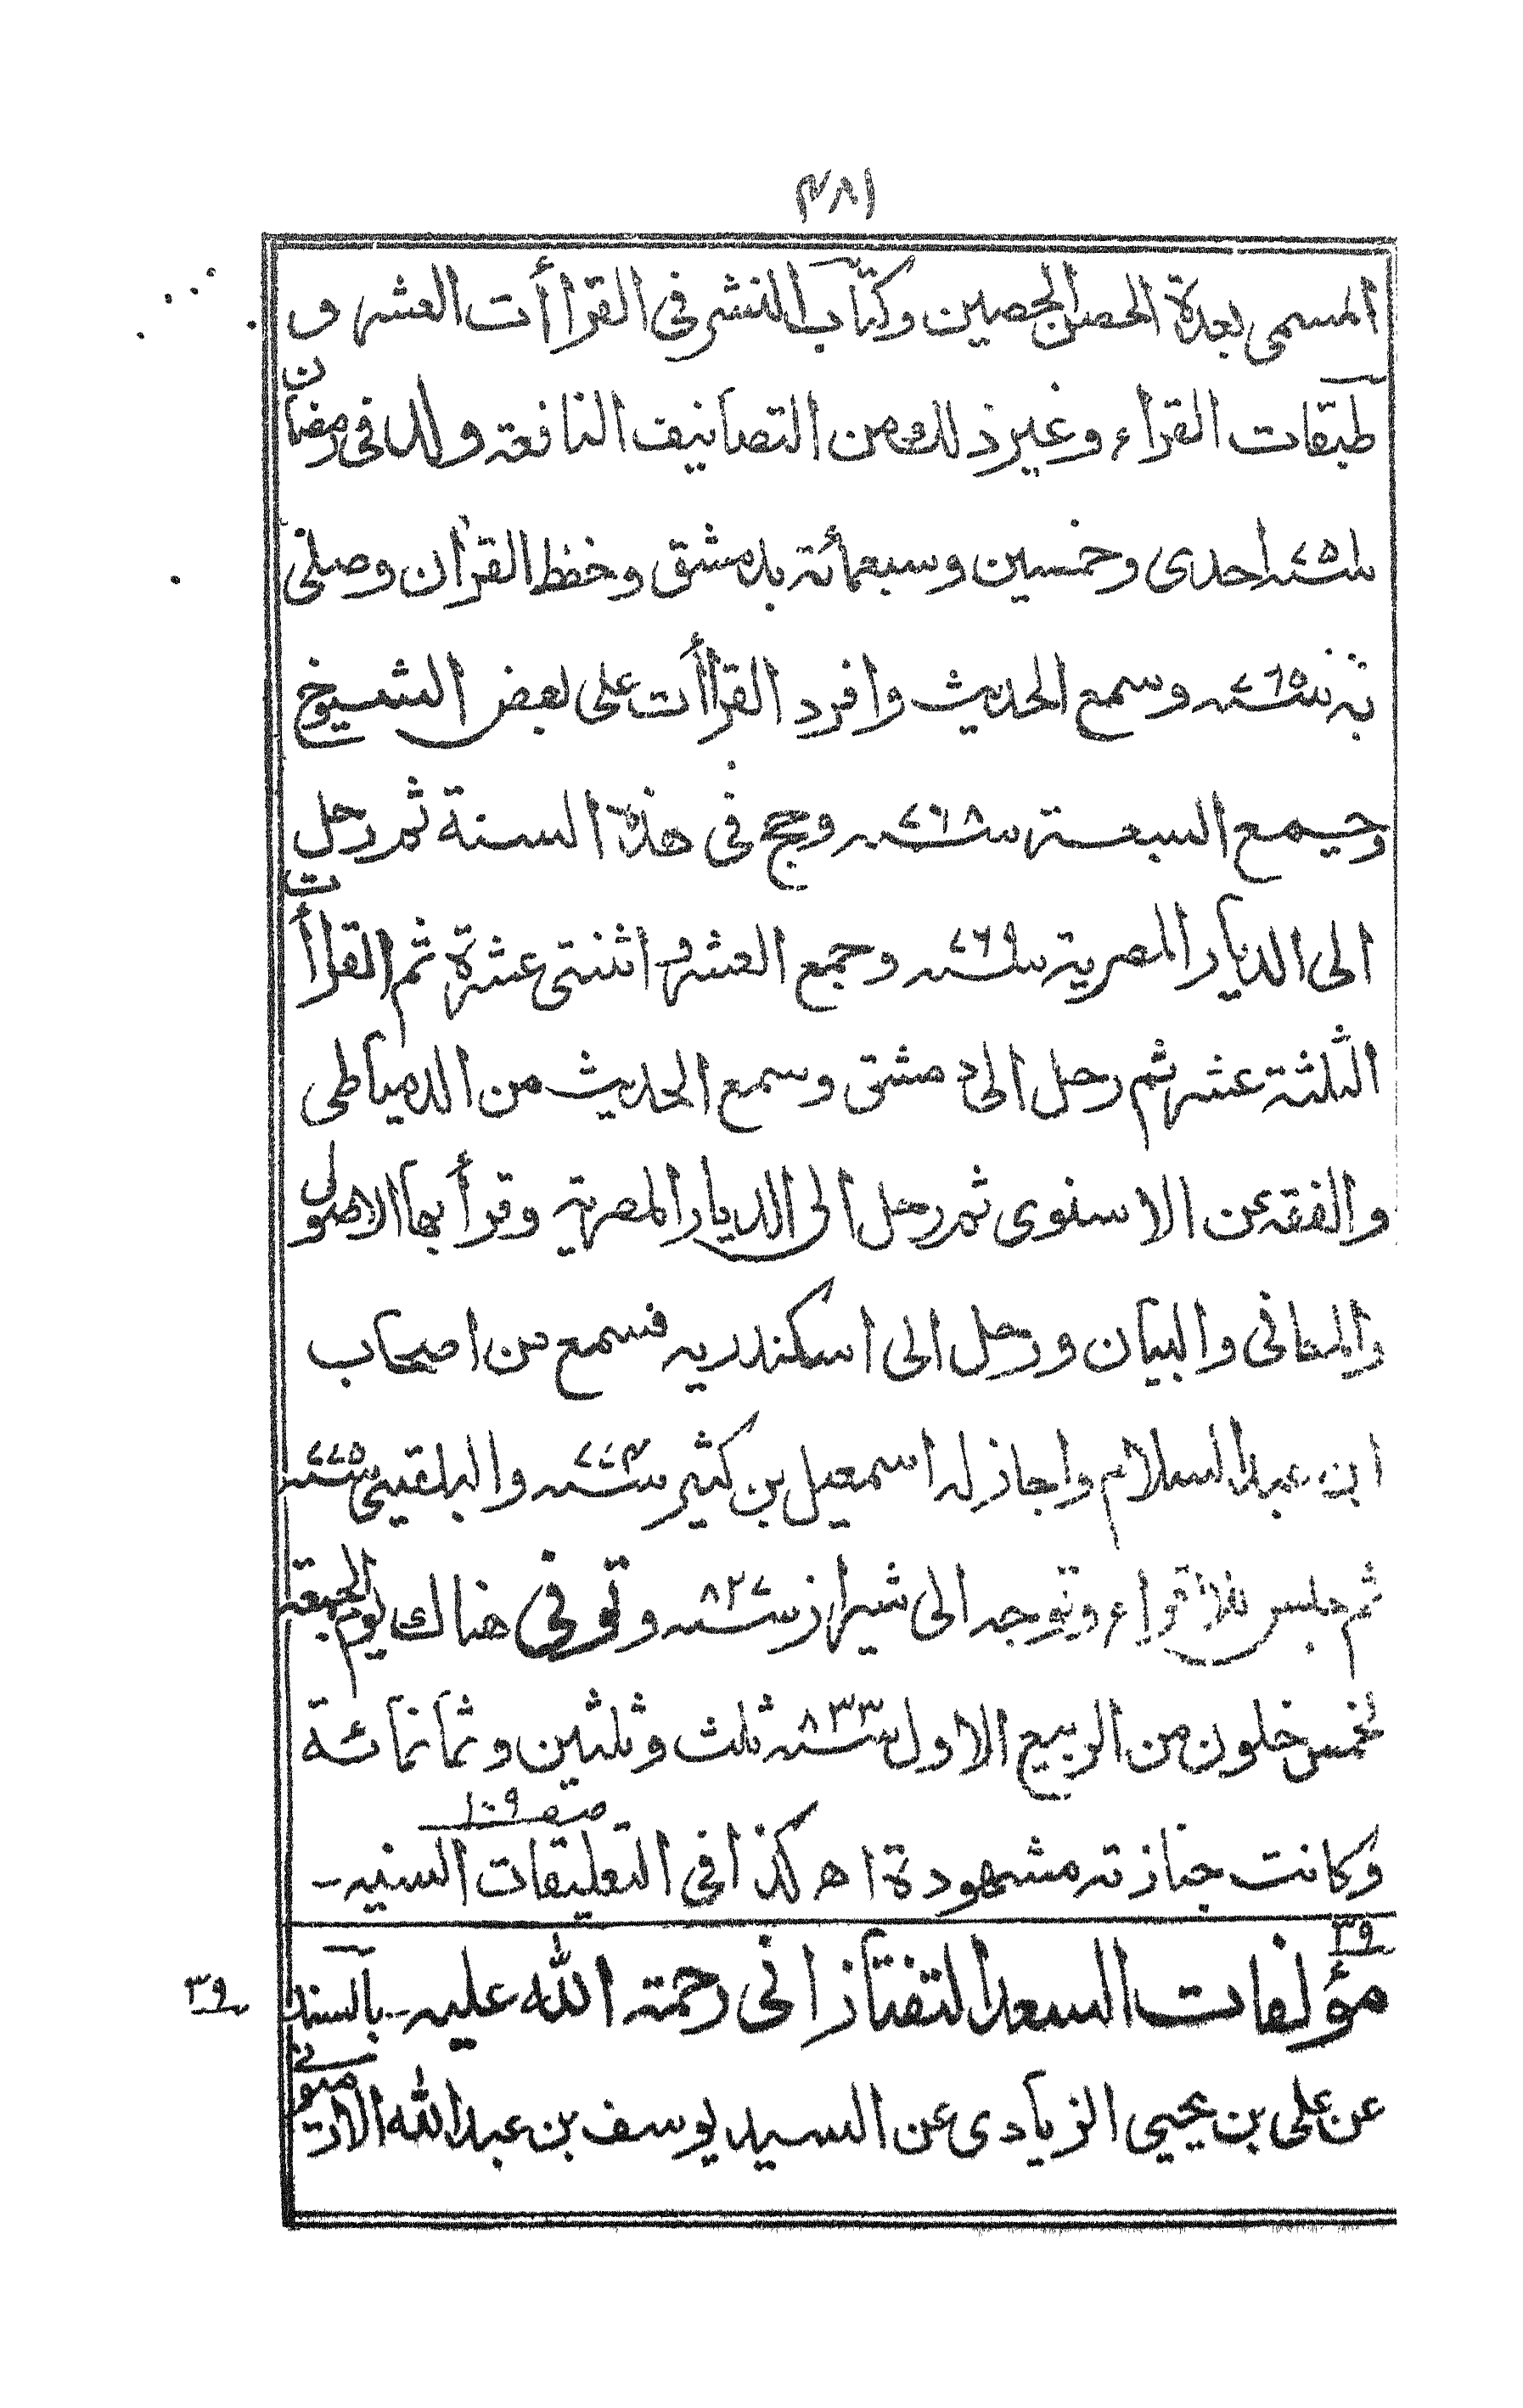 ۴۸۱
المسمى بعدة الحصن الحصين وكتاب النشر فى القراأت العشر و
طبقات القراء وغير ذلك من التصانيف النافعة ولد فى رمضان
سنة ۷۵۱ احدى وخمسين وسبعمائة بدمشق وحفظ القرآن وصلى
به سنة ۷۶۵ وسمع الحديث وافرد القراأت على بعض الشيوخ
وجمع السبعة سنة ۷۶۸ وحج فى هذة السنة ثم رحل
الى الديار المصرية سنة ۷۶۹ وجمع العشر و اثنتى عشرة ثم القراأت
الثلثة عشر ثم رحل الى دمشق وسمع الحديث من الدمياطى
والفقه عن الاسنوى ثم رحل الى الديار المصرية وقرأ بها الاصول
والمعانى والبيان ورحل الى اسكندريه فسمع من اصحاب
ابن عبد السلام واجاز له اسمعيل بن كثير سنة ۷۷۴ والبلقينى سنة ۷۷۵
ثم جلس للاقراء وتوجه الى شيراز سنة ۸۲۷ وتوفى هناك يوم الجمعة
لخمس خلون من الربيع الاول سنة ۸۳۳ ثلث وثلثين وثمانمائة
وكانت جنازته مشهودة اه كذا فى التعليقات السنيه - صفـ ۱۰۹
۳۹
مؤلفات السعد التفتازانى رحمته الله عليه - بالسند
۳۹
عن على بن يحيى الزيادى عن السيد يوسف بن عبد الله الارميونى